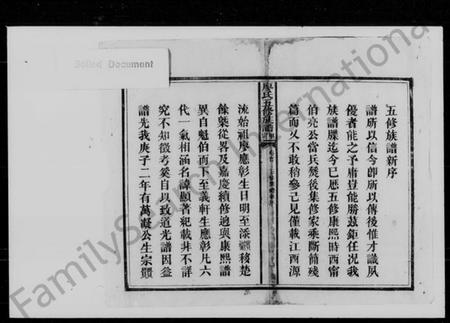 Soiled Document
廖氏五修族譜
五修族譜新序
譜所以信今卽所以傳後惟才識夙
優者能之予庸豈能勝茲鉅任况我
族譜牒迄今已歷五修康熙時西甯
伯亮公當兵燹後集修家乘斷簡殘
篇而又不敢稍參己見僅載江西源
流始祖廖應彰生日明至添 移楚
餘槩從畧及嘉慶續修迺與康熙譜
異自魁伯而下至義軒生應彰凡六
代一氣相涵名諱顯著紀載非不詳
究不知徵考奚自以致道光譜因並
譜先我庚子二年有萬凝公生宗
FamilySearch International